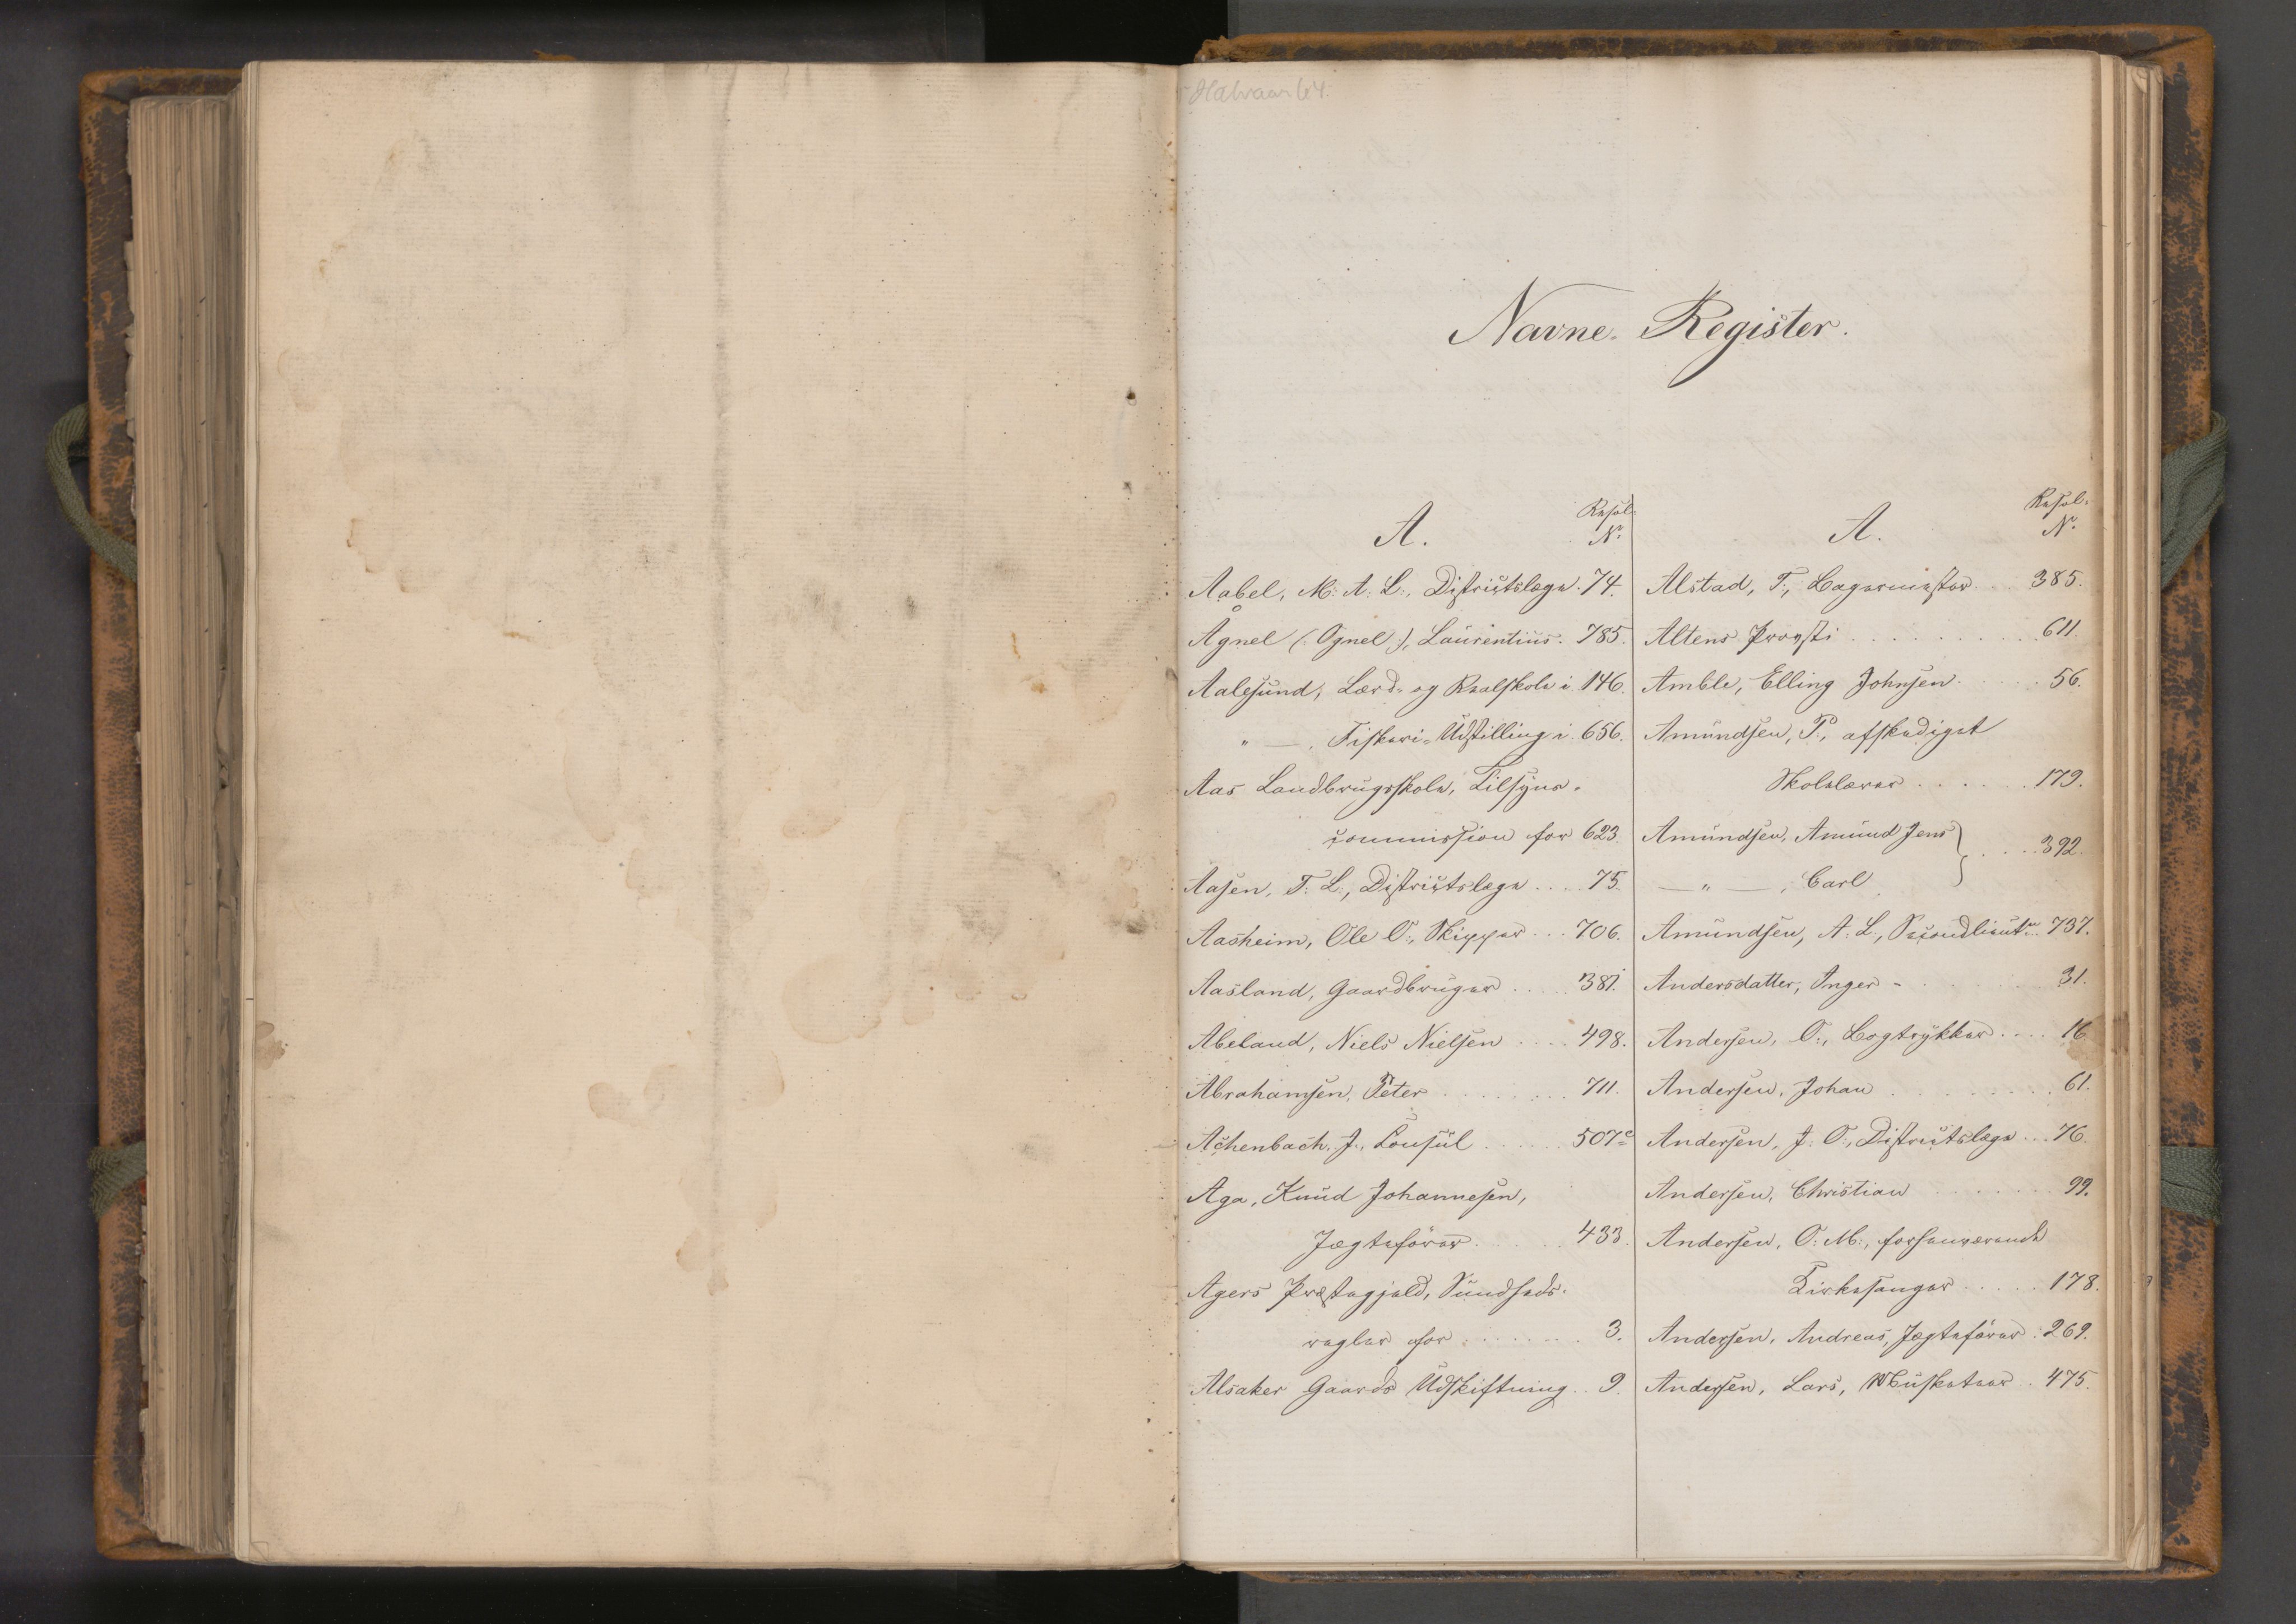 Halvaar 64.
Navne-Register.
A.
Resol-
No.
Aabel, M. A. L., Districtslæge. 74.
Agnel (: Ognel :), Laurentius. 785.
Aalesund, Lærd- og Realskole i 146.
" — , Fiskeri-Udstilling i 656.
Aas Landbrugsskole, Tilsyns-
commission for 623.
Aasen, T. L., Districtslæge .... 75.
Aasheim, Ole O., Skipper ... 706.
Aasland, Gaardbruger .... 381.
Abeland, Niels Nielsen .... 498.
Abrahamsen, Peter ........ 711.
Achenbach, J., Consul ..... 507c
Aga, Knud Johannesen,
Jægtefører ..... 433.
Agers Præstegjeld, Sundheds-
regler for ........ 3.
Alsaker Gaards Udskiftning .. 9.
A.
Resol-
No.
Alstad, T., Bagermester ... 385.
Altens Provsti ......... 611.
Amble, Elling Johnsen ..... 56.
Amundsen, P., afskediget
Skolelærer ...... 179.
Amundsen, Amund Jens
} .... 392.
— " — , Carl
Amundsen, A. L., Secondlieutn. 737.
Andersdatter, Inger - ...... 31.
Andersen, O., Bogtrykker .... 16
Andersen, Johan ......... 61.
Andersen, J. O., Districtslæge ... 76.
Andersen, Christian ....... 99.
Andersen, O. M., forhenværende
Kirkesanger ..... 178.
Andersen, Andreas, Jægtefører . 269.
Andersen, Lars, Musketeer . 475.